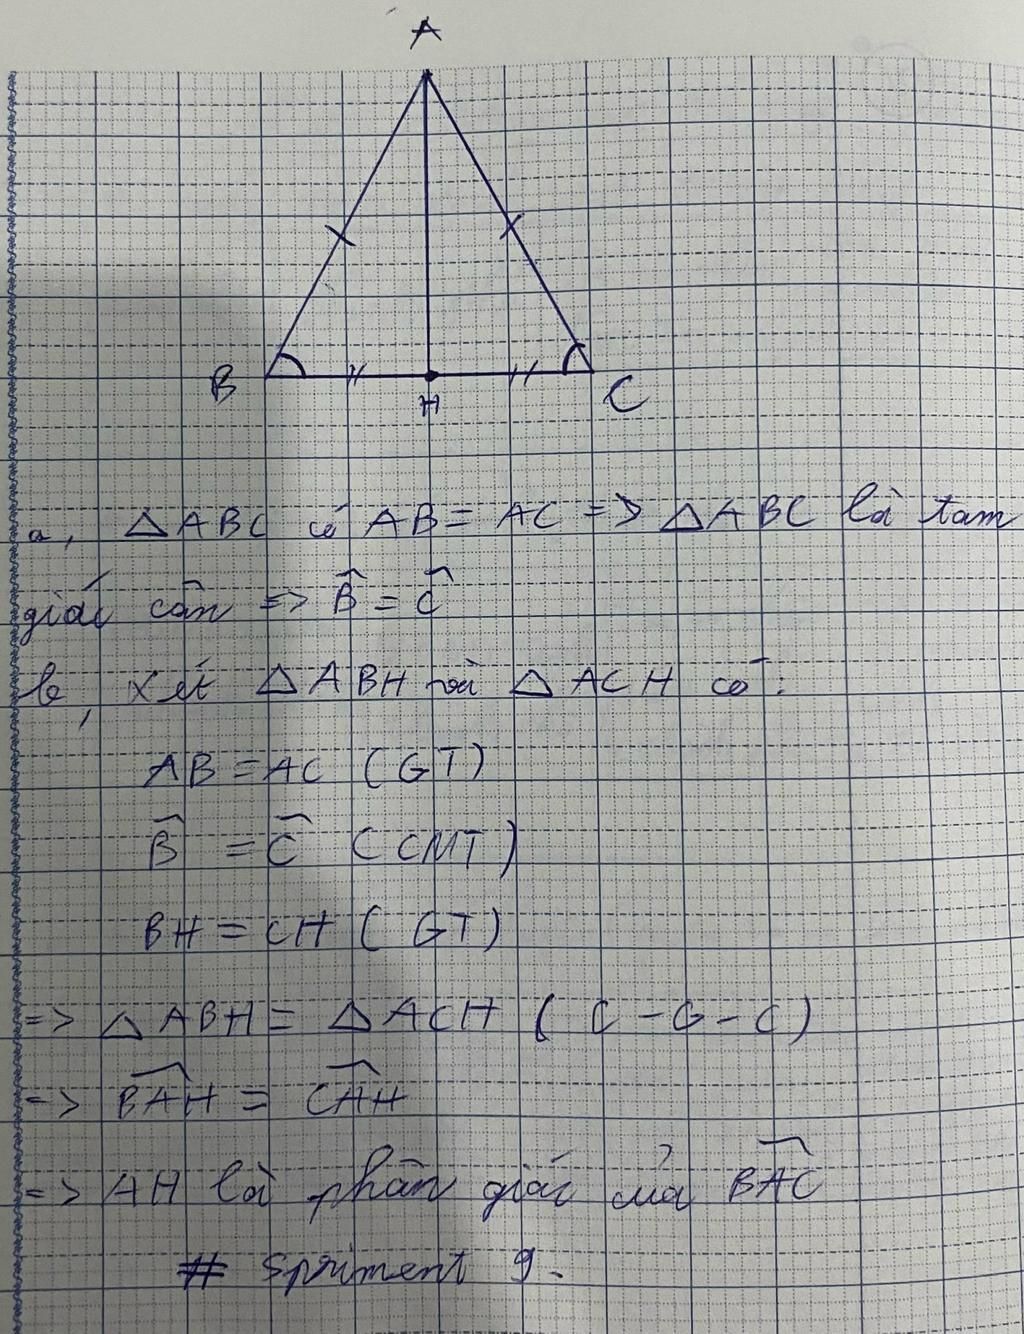 A
B
H
C
a, △ABC có AB = AC => △ABC là tam
giác cân => B̂ = Ĉ
b, Xét △ABH và △ACH có:
AB = AC (GT)
B̂ = Ĉ (CMT)
BH = CH (GT)
=> △ABH = △ACH (C-G-C)
=> BÂH = CÂH
=> AH là phân giác của BÂC
# Spriment 9.